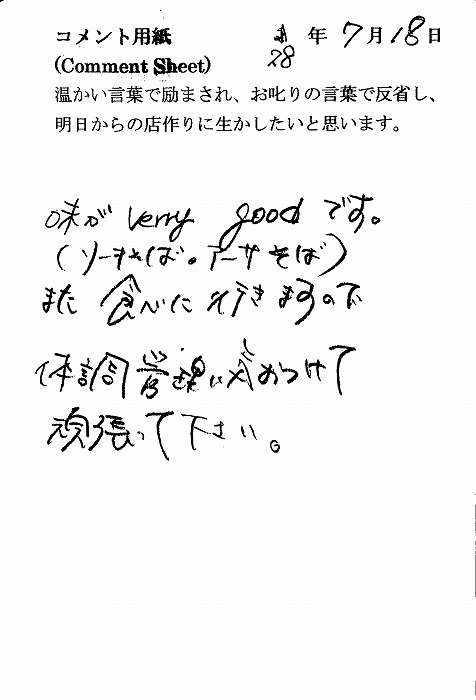 コメント用紙 年 7月18日
28
(Comment Sheet)
温かい言葉で励まされ、お叱りの言葉で反省し、
明日からの店作りに生かしたいと思います。
味が verry good です。
(ソーキそば。アーサそば)
また 食べに 行きますので
体調管理に気おつけて
頑張って下さい。